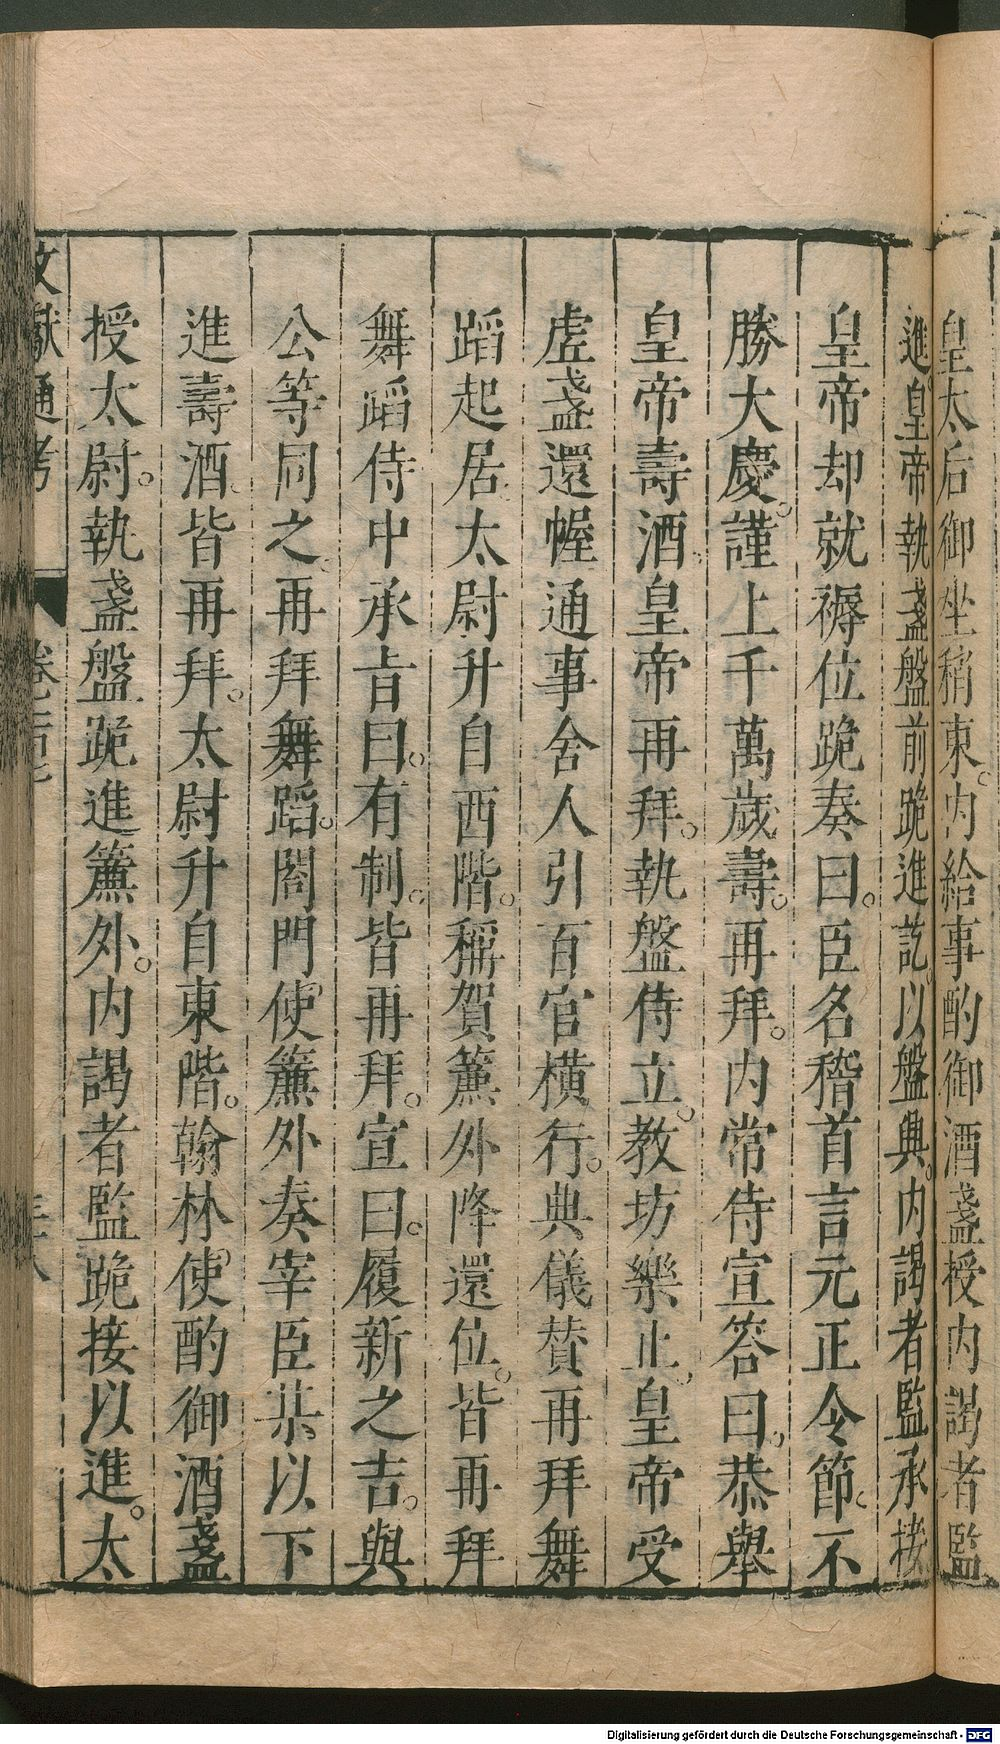 皇太后御坐稍東。内給事酌御酒盞授内謁者監
進。皇帝執盞盤前跪進訖。以盤興。内謁者監承接
皇帝却就褥位跪奏曰。臣名稽首言元正令節。不
勝大慶。謹上千萬歲壽。再拜。内常侍宣答曰。恭舉
皇帝壽酒。皇帝再拜。執盤侍立。教坊樂止。皇帝受
虛盞還幄通事舍人引百官横行。典儀贊再拜舞
蹈起居。太尉升自西階。稱賀簾外降還位。皆再拜
舞蹈侍中承旨曰。有制。皆再拜。宣曰。履新之吉。與
公等同之。再拜舞蹈。閤門使簾外奏宰臣某以下
進壽酒。皆再拜。太尉升自東階。翰林使酌御酒盞
授太尉。執盞盤跪進簾外。内謁者監跪接以進。太
文獻通考
Digitalisierung gefördert durch die Deutsche Forschungsgemeinschaft - DFG